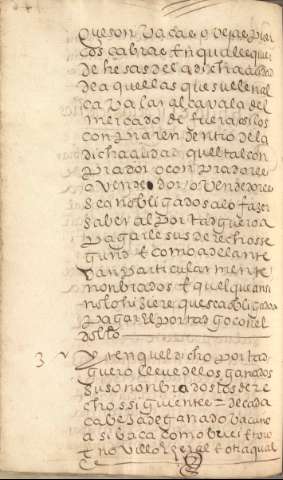 que son vacas e ovejas puer
cos cabras e en qualesquier
dehesas de la dicha cibdad
de aquellas que suelen al
caualar alcavala del
mercado de fuera o si los
conpraren dentro de la
dicha cibdad quel tal con
prador o conpradores
o vendedor o vendedores
sean obligados a lo fazer
saber al portadguero a
pagarle sus derechos se
gund e como adelante
van particularmente
nonbrados e quel que ansi
no lo hiziere que sea obligado a
pagar el portadgo con el
doblo
3 Yten quel dicho portad
guero lleue de los ganados
suso nonbrados los dere
chos siguientes = de cada
cabeça de ganado vacuno
asi vaca como buei e toro
e novillo e eral e otra qual